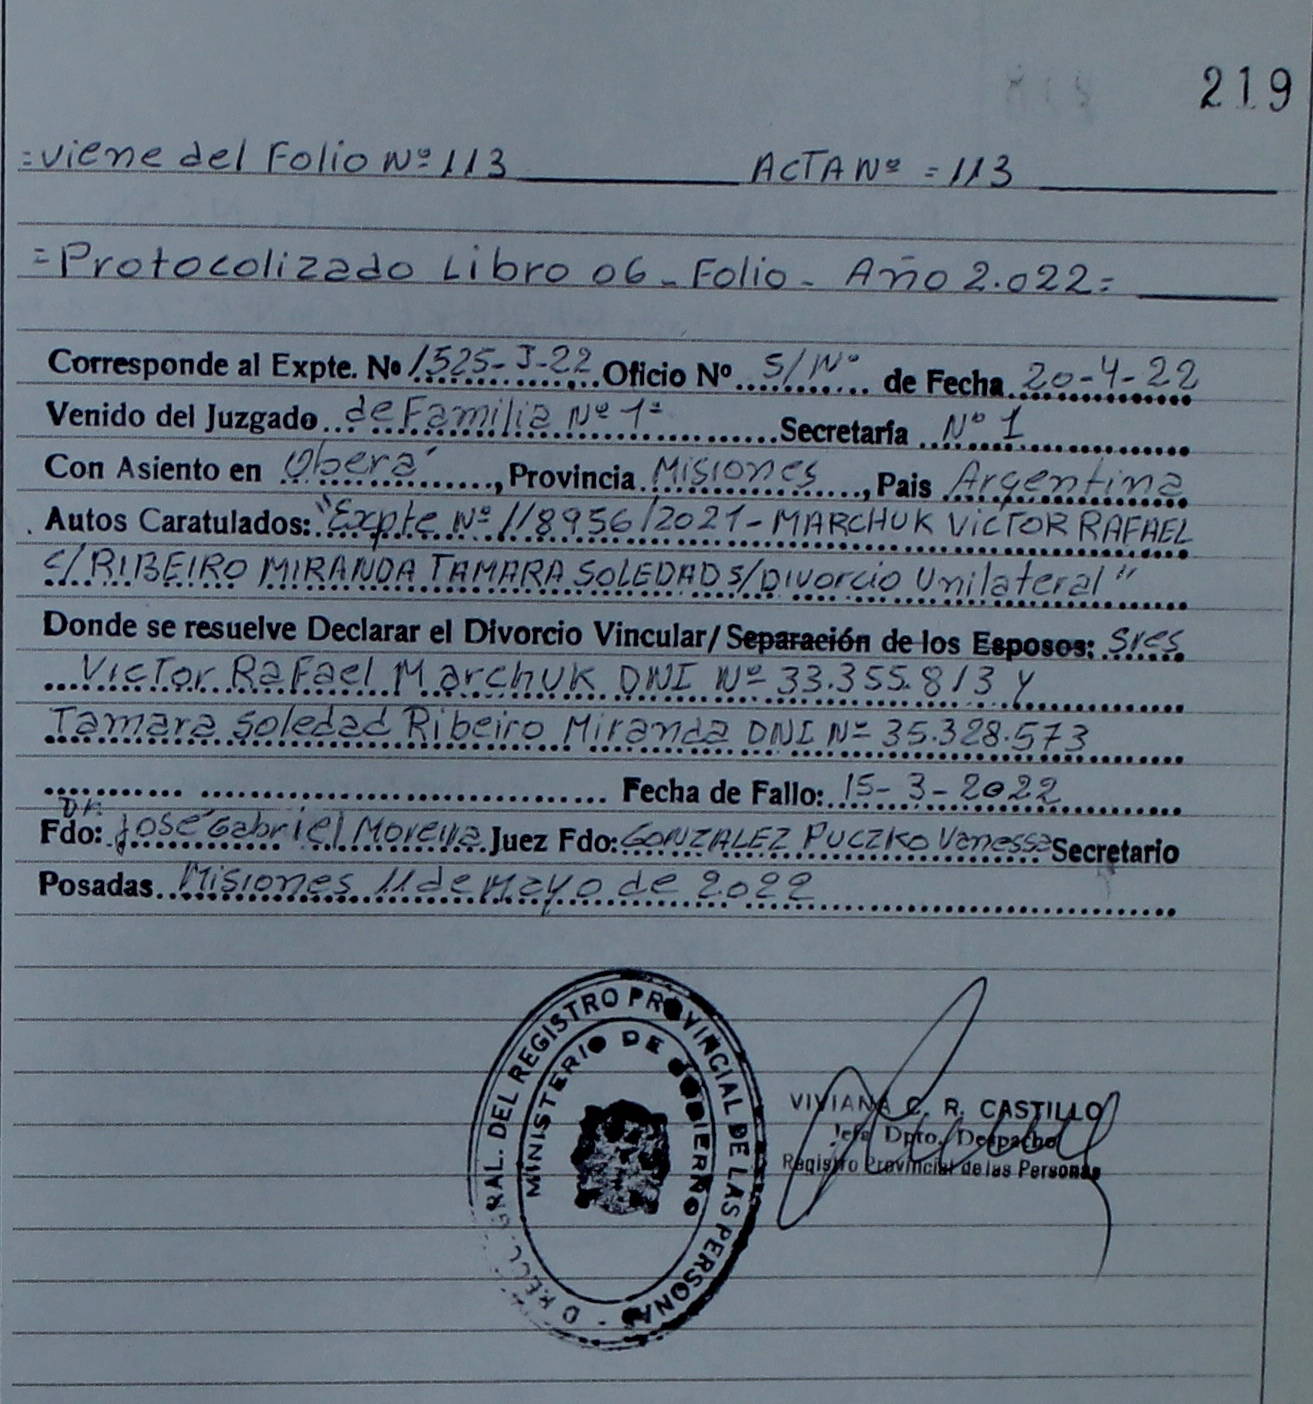 219
=viene del Folio Nº 113 ACTA Nº =113
=Protocolizado Libro 06 - Folio - Año 2.022=
Corresponde al Expte. Nº 1525-J-22 Oficio Nº S/Nº de Fecha 20-4-22
Venido del Juzgado de Familia Nº 1= Secretaría Nº 1
Con Asiento en Oberá, Provincia Misiones, Pais Argentina
Autos Caratulados: "Expte Nº 118956/2021- MARCHUK VICTOR RAFAEL
c/RIBEIRO MIRANDA TAMARA SOLEDAD s/Divorcio Unilateral"
Donde se resuelve Declarar el Divorcio Vincular/Separación de los Esposos: Sres
Victor Rafael Marchuk DNI Nº 33.355.813 y
Tamara Soledad Ribeiro Miranda DNI Nº 35.328.573
Fecha de Fallo: 15-3-2022
Dr.
Fdo: José Gabriel Moreira Juez Fdo: GONZALEZ PUCZKO Vanessa Secretario
Posadas Misiones 11 de Mayo de 2.022
GRAL. DEL REGISTRO PROVINCIAL DE LAS PERSONAS
MINISTERIO DE GOBIERNO
VIVIANA C. R. CASTILLO
Jefa Dpto. Despacho
Registro Provincial de las Personas